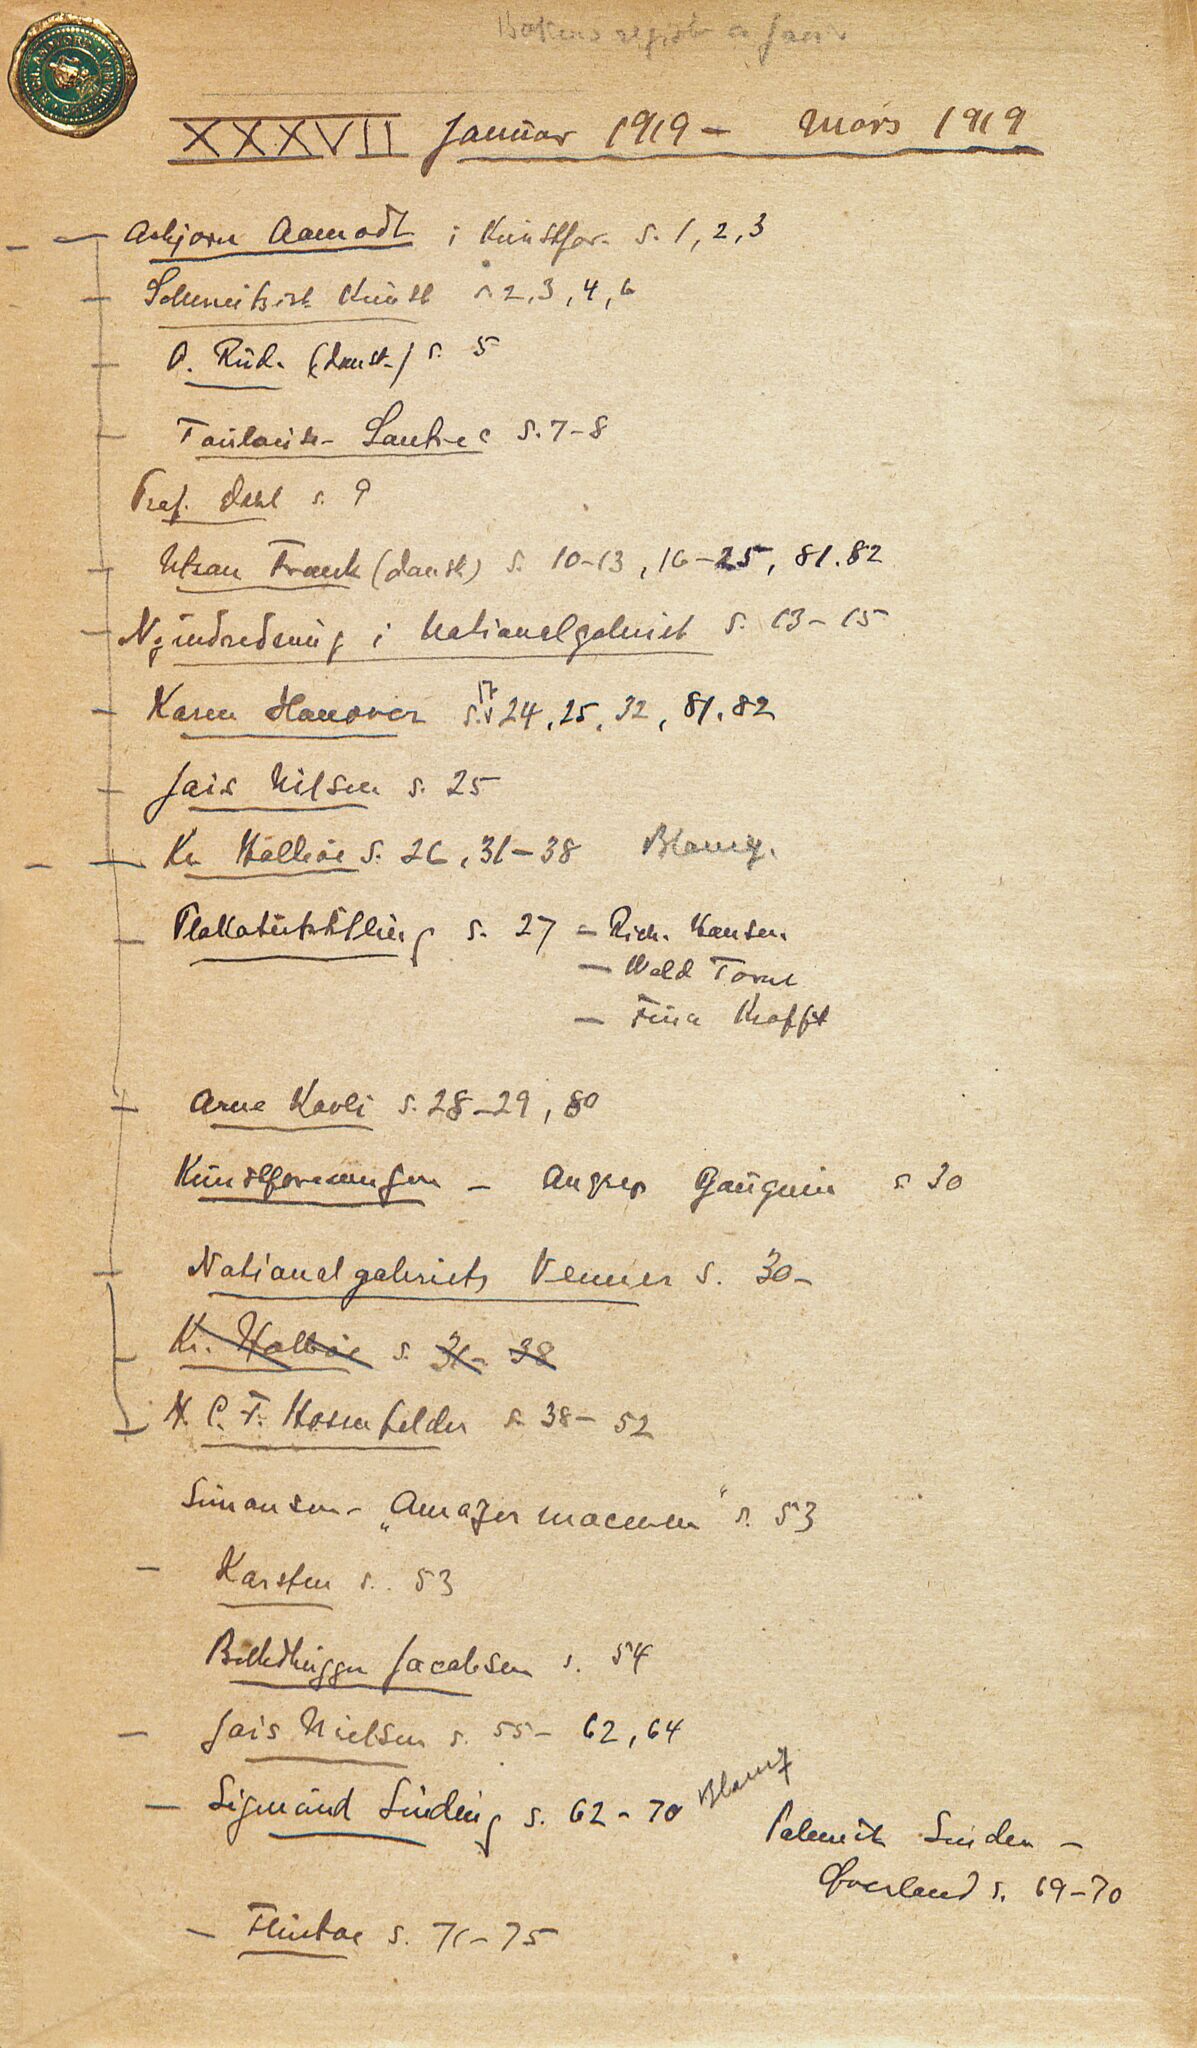 XXXVII Januar 1919 – Mars 1919
Asbjørn Aamodt i Kunstfor. s. 1, 2, 3
Schweitzisk Kunst s 2, 3, 4, 6
O. Rud. (dansk) s. 5
Toulouse-Lautrec s. 7-8
Prof. Dahl s. 9
Utzon Frank (dansk) s. 10-13, 16-25, 81. 82
Nyindredning i Nationalgaleriet s. 13-15
Karen Hanover s. 17 24, 25, 32, 81. 82
Jais Nilsen s. 25
Kr. Holbøe s. 26, 31-38 Blomq.
Plakatutstilling s. 27 – Rich. Hansen
– Wald Torne
– Finn Krafft
Arne Kavli s. 28-29, 80
Kunstforeningen – Angrep Gauguin s 30
Nationalgaleriets Venner s. 30-
Kr. Holbøe s. 31- 38
H. C. F. Hosenfelder s. 38- 52
Simonsen- „Amagermacenen" s. 53
– Karsten s. 53
Billedhugger Jacobsen s. 54
– Jais Nielsen s. 55- 62, 64
– Sigmund Sinding s. 62-70 Blomq
Polemik Sinden –
Øverland s. 69-70
– Flintoe s. 71-75